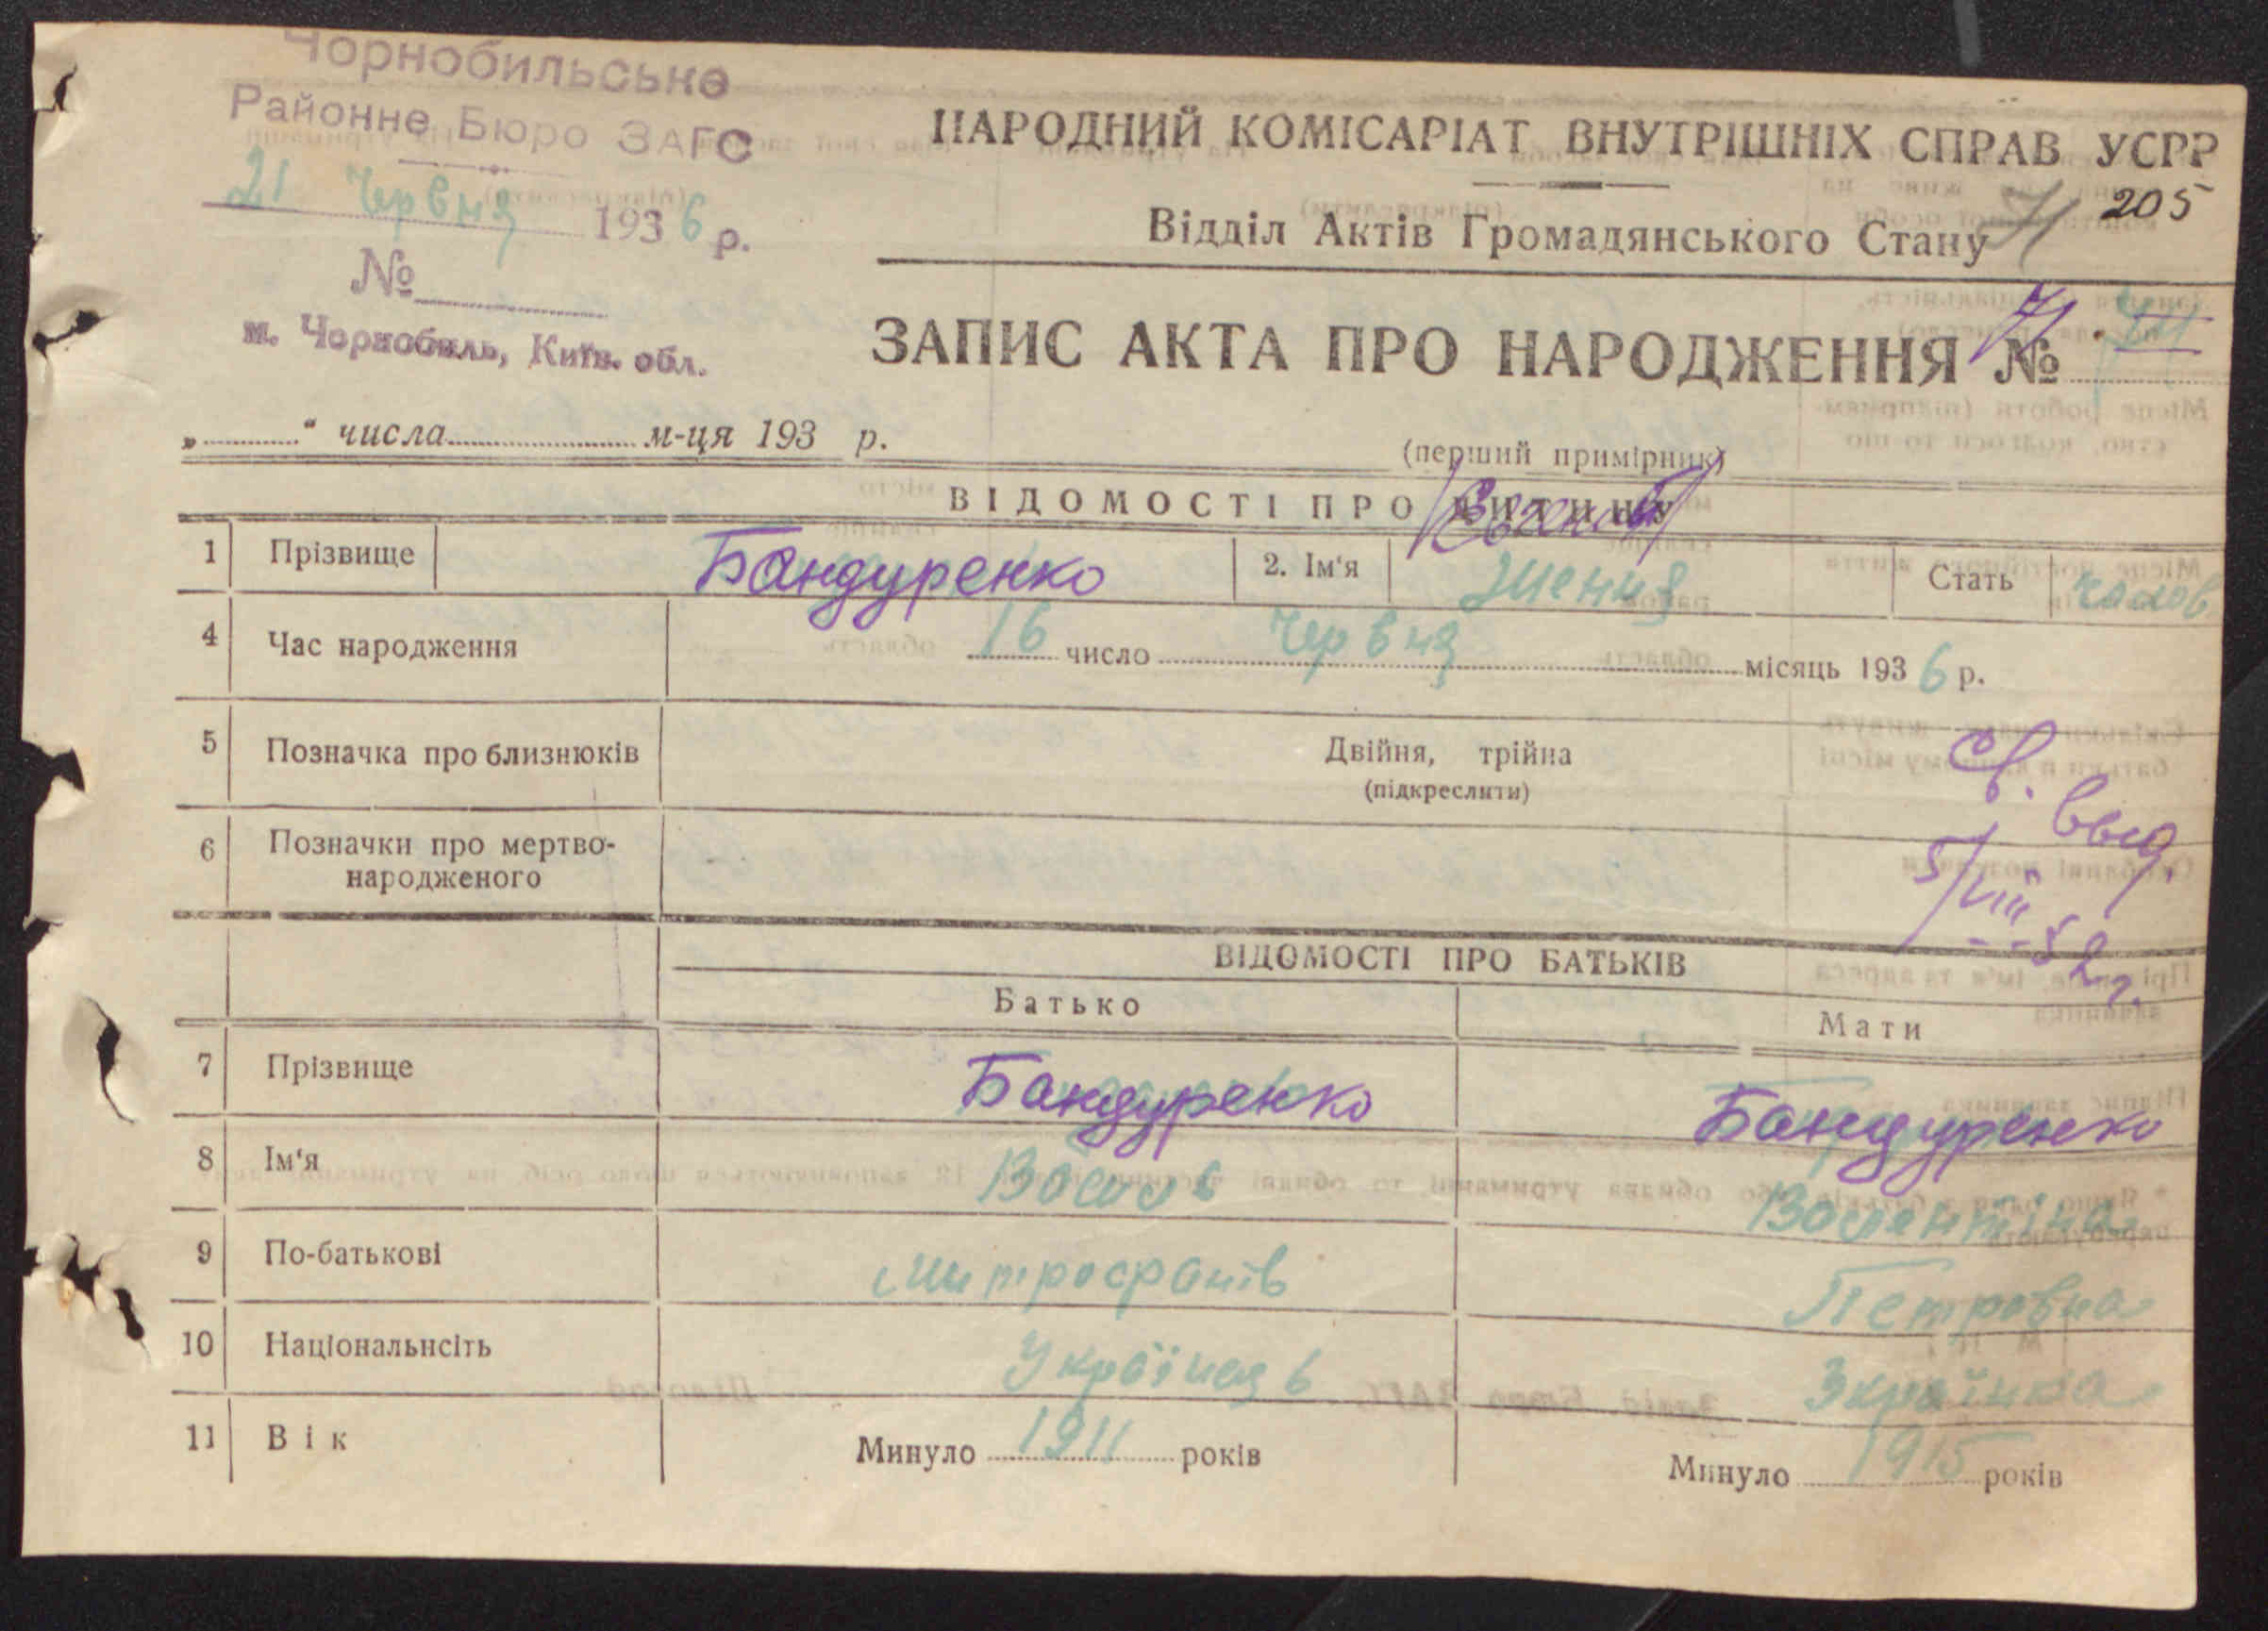 Чорнобильське
Районне Бюро ЗАГС
21 Червня 1936 р.
№
м. Чорнобиль, Київ. обл.
НАРОДНИЙ КОМІСАРІАТ ВНУТРІШНІХ СПРАВ УСРР
205
Відділ Актів Громадянського Стану 71
ЗАПИС АКТА ПРО НАРОДЖЕННЯ № 71
„ “ числа м-ця 193 р.
(перший примірник)
ВІДОМОСТІ ПРО ДИТИНУ
1 Прізвище Бандуренко 2. Ім'я Женя Стать
4 Час народження 16 число Червня місяць 1936 р.
5 Позначка про близнюків Двійня, трійна
(підкреслити)
6 Позначки про мертво-
народженого
св. выд.
5/VIII-52 г.
ВІДОМОСТІ ПРО БАТЬКІВ
Батько Мати
7 Прізвище Бандуренко Бандуренко
8 Ім'я Валентіна
9 По-батькові Митрофанів Петровна
10 Національнсіть Українець Українка
11 Вік Минуло 1911 років Минуло 1915 років